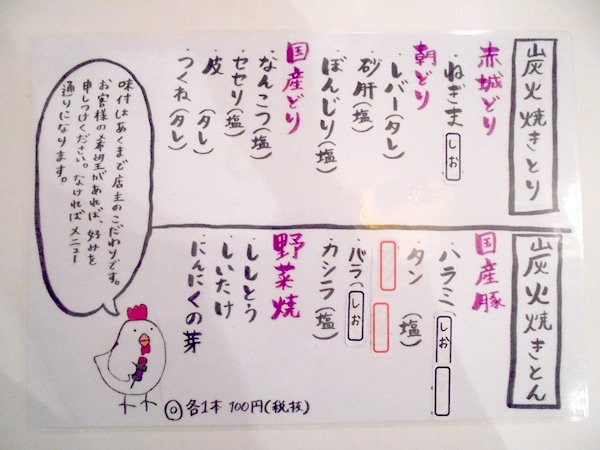 炭火焼きとり
赤城どり
・ねぎま しお
朝どり
・レバー(タレ)
・砂肝(塩)
・ぼんじり(塩)
国産どり
・なんこつ(塩)
・セセリ(塩)
・皮(タレ)
・つくね(タレ)
炭火焼きとん
国産豚
・ハラミ しお
・タン(塩)
・バラ しお
・カシラ(塩)
野菜焼
・ししとう
・しいたけ
・にんにくの芽
味付はあくまで店主のこだわりです。
お客様の希望があれば、好みを
申しつけください。なければメニュー
通りになります。
◎各1本 100円(税抜)